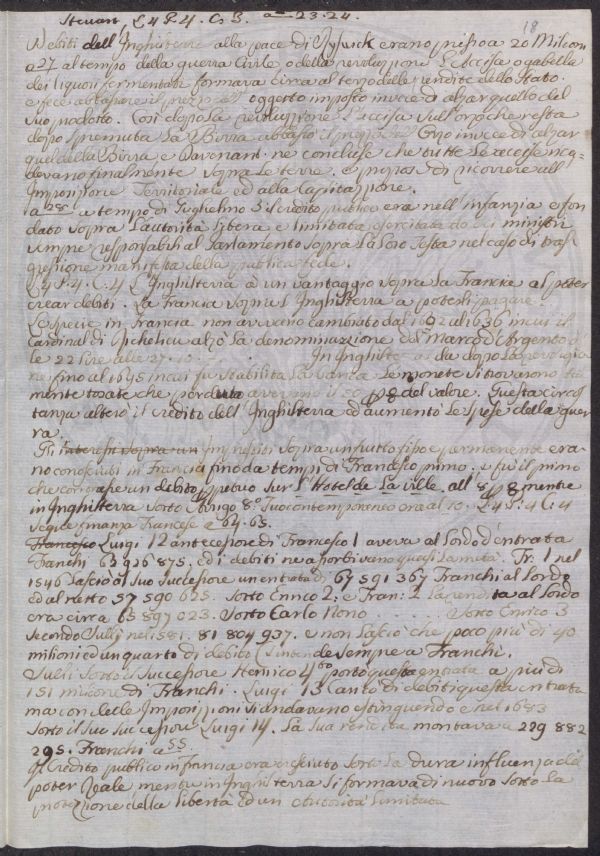 Steuart, L 4 P. 4. C. 3. a 23.24.
18
Debiti dell'Inghilterra alla pace di Ryswick erano presso a 20 Milioni
a 27 al tempo della guerra Civile o della revoluzione L'accisa o gabella
dei liquori fermentati formava circa al terzo delle rendite dello Stato.
e fece abbassare il prezzo oggetto imposto invece di alzar quello del
suo prodotto. Così dopo la revoluzione L'accisa sull'orzo che resta
dopo spremuta La Birra abbassò il prezzo Orzo invece di alzar
quel della Birra e Davenant ne concluse che tutte Le accise
devano finalmente sopra Le terre. e propose di ricorrere all'
Imposizione Territoriale ed alla Capitazione.
a 28 a tempo di Guglielmo 3 il credito publico era nell'infanzia e fon
dato sopra L'autorità libera e limitata esercitata da ministri
sempre responsabili al Parlamento sopra La Loro Testa nel caso di tras
gressione manifesta della publica fede.
L 4 P. 4. C. 4 L'Inghilterra a un vantaggio sopra La Francia al poter
crear debiti. La Francia sopra l'Inghilterra a poterli pagare.
Le specie in Francia non avevano cambiato dal 1602 al 1636 in cui il
Cardinal di Richelieu alzò La denominazione dal Marco d'Argento
le 22 Lire alle 27.10. In Inghilterra da dopo La
ne fino al 1695 in cui fu stabilita La Banca Le monete si trovarono
mente tosate che perduto avevano il 50 p 8 del valore. Questa circos
tanza alterò il credito dell'Inghilterra ed aumentò Le spese della guer
ra.
Gli interessi sopra un Imprestiti sopra un frutto fisso e permanente era
no conosciuti in Francia fino da tempi di Francesco primo. e fu il primo
che contrasse un debito perpetuo sur L'Hotel de La ville. all 8 p 8 mentre
in Inghilterra sotto Arrigo 8° suo contemporaneo era al 10. L 4 P. 4 C. 4
segue finanza Francese a 64.65.
Francesco Luigi 12 antecessore di Francesco 1 aveva al Lordo d'entrata
Franchi 62 926 875. ed i debiti ne assorbivano quasi La metà. Fr: 1 nel
1546 Lasciò al suo successore un entrata di 67 591 367 Franchi al Lordo
ed al netto 57 590 625. sotto Enrico 2. e Fran: 2 La rendita al Lordo
era circa 65 897 023. sotto Carlo Nono . . . . . . sotto Enrico 3
secondo Sully nel 1581. 81 804 937. e non Lasciò che poco più di 40
milioni ed un quarto di debito s'intende sempre a Franchi.
Sulli sotto il successore Henrico 4to portò questa entrata a più di
151 milioni di Franchi. Luigi 13 cantò di debiti questa entrata
ma con delle Imposizioni si andavano estinguendo e nel 1683
sotto il suo successore Luigi 14. La sua rendita montava a 229 882
295. Franchi a 55.
Il Credito publico in francia era cresciuto sotto La dura influenza del
poter Reale mentre in Inghilterra si formava di nuovo sotto La
protezione della Libertà ed un autorità limitata